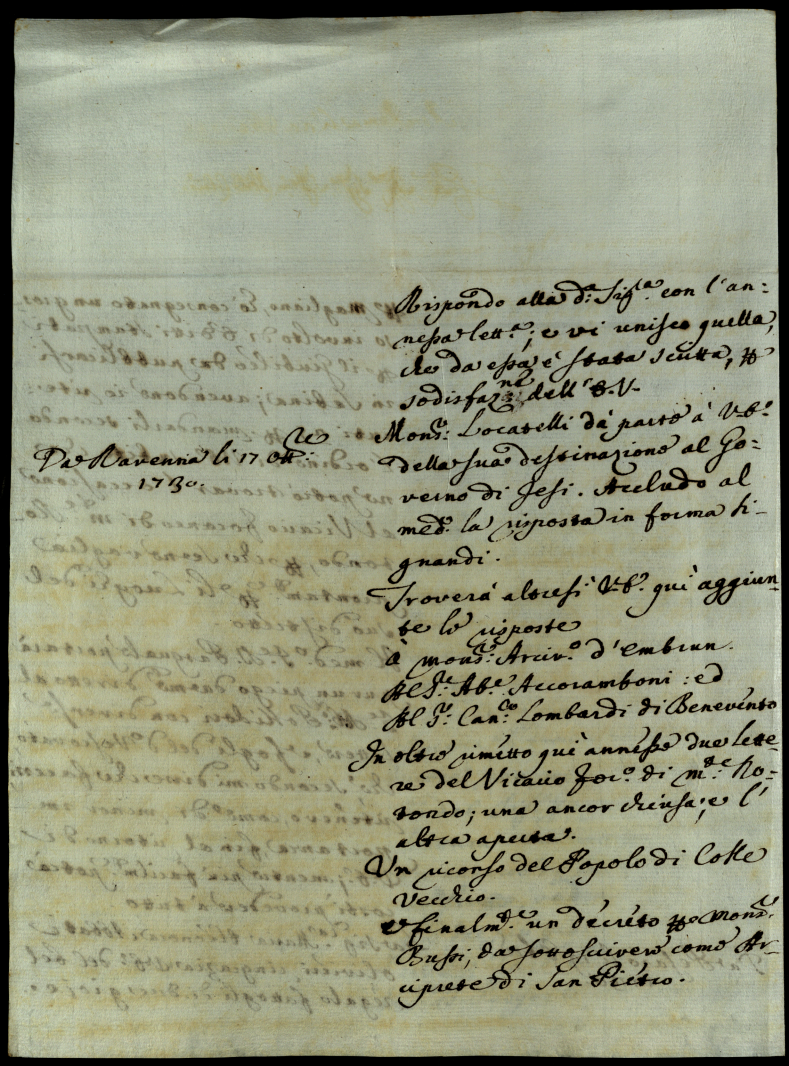 Rispondo alla d.ª Sig.ª con l'an=
nessa lett.ª; e vi unisco quella,
che da essa è stata scritta, p
sodisfaz.ne dell' E.V.
Mons.r Locatelli dà parte à V.E.
della sua destinazione al Go=
verno di Jesi. Accludo al
med.º la risposta in forma si=
gnandi.
Da Ravenna li 17 ott.re:
1730.
Troverà altresì V.E. quì aggiun=
te le risposte
à Mons.r Arciv.º d'Embrun.
Al S.r Ab.e Accoramboni: ed
Al S.r Can.co Lombardi di Benevento
In oltre rimetto quì annesse due lette=
re del Vicario For.º di M.te Ro=
tondo; una ancor chiusa; e l'
altra aperta.
Un ricorso del Popolo di Colle
Vecchio.
e finalm.te un decreto p Mons.r
Bussi, da sottoscivere come Ar=
ciprete di San Pietro.